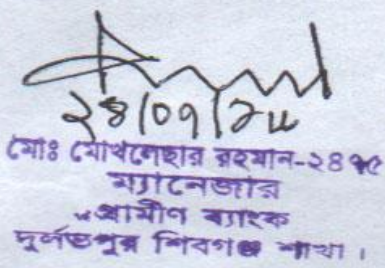 ২৪/০৭/২৫
মোঃ মোখলেছার রহমান-২৪৭৫
ম্যানেজার
গ্রামীণ ব্যাংক
দূর্লভপুর শিবগঞ্জ শাখা।